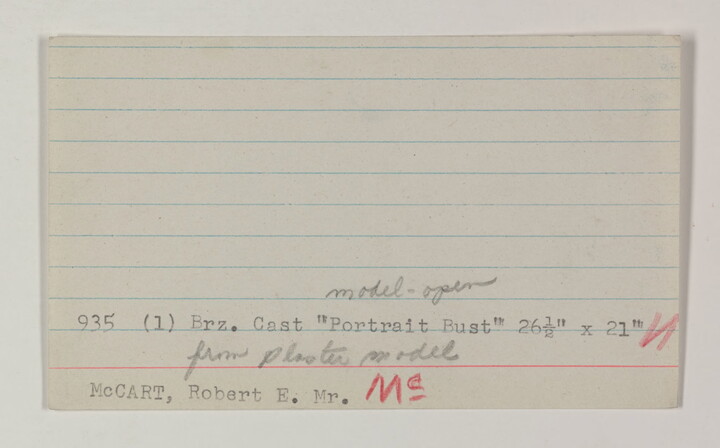 model - open
935 (1) Brz. Cast "Portrait Bust" 26½" x 21"
from plaster model
McCART, Robert E. Mr. Mc